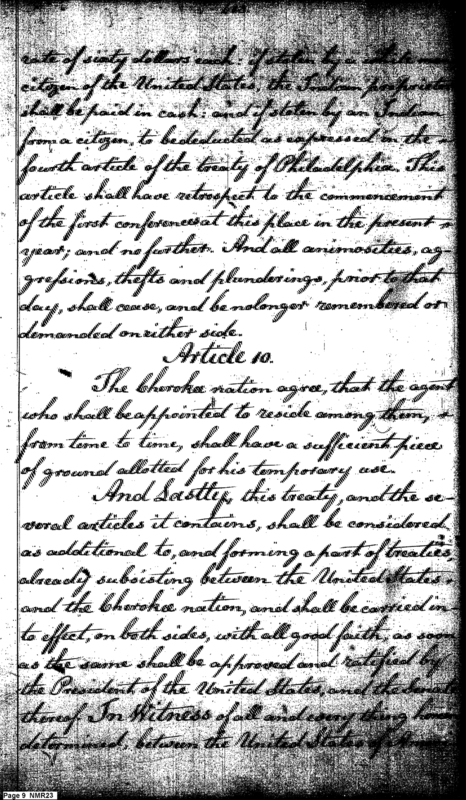 rate of sixty dollars each: if stolen by a white man
citizen of the United States, the Indian proprietor
shall be paid in cash: and if stolen by an Indian
from a citizen, to be deducted as expressed in the
fourth article of the treaty of Philadelphia. This
article shall have retrospect to the commencement
of the first conferences at this place in the present
year; and no further. And all animosities, ag-
gressions, thefts and plunderings, prior to that
day, shall cease, and be no longer remembered or
demanded on either side.
Article 10.
The Cherokee nation agree, that the agent
who shall be appointed to reside among them,
from time to time, shall have a sufficient piece
of ground allotted for his temporary use.
And Lastly, this treaty, and the se-
veral articles it contains, shall be considered,
as additional to, and forming a part of treaties,
already subsisting between the United States
and the Cherokee nation, and shall be carried in-
to effect, on both sides, with all good faith, as soon
as the same shall be approved and ratified by
the President of the United States, and the Senate
thereof. In Witness of all and every thing herein
determined, between the United States of
Page 9 NMR23